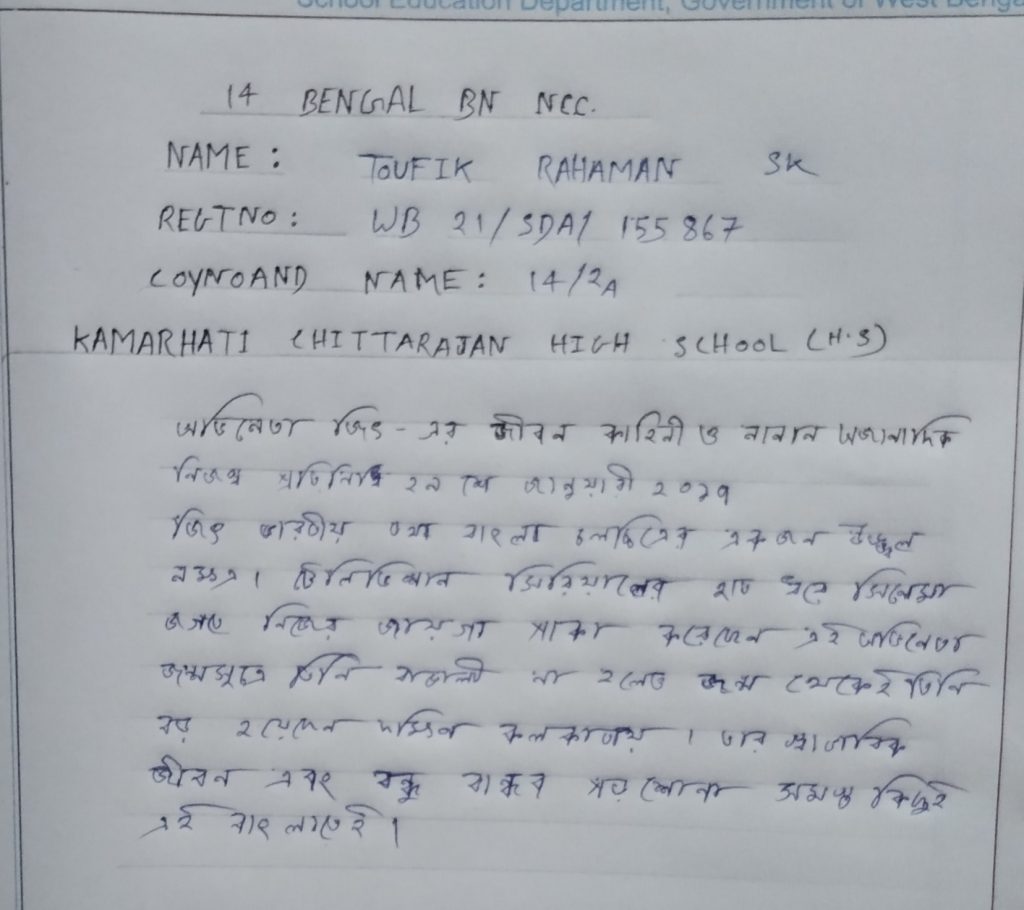 School Education Department, Government of West Benga
14 BENGAL BN NCC.
NAME : TOUFIK RAHAMAN SK
REGTNO : WB 21/SDA/ 155 867
COYNOAND NAME : 14/2A
KAMARHATI CHITTARAJAN HIGH SCHOOL (H.S)
অভিনেতা জিৎ - এর জীবন কাহিনী ও নানান অজানাদিক
নিজস্ব প্রতিনিধি ২৯ শে জানুয়ারী ২০১৭
জিৎ ভারতীয় তথা বাংলা চলচিত্রের একজন উজ্জ্বল
নক্ষত্র। টেলিভিশান সিরিয়ালের হাত ধরে সিনেমা
জগতে নিজের জায়গা পাকা করেছেন এই অভিনেতা
জন্মসূত্রে তিনি বাঙালী না হলেও জন্ম থেকেই তিনি
বড় হয়েছেন দক্ষিন কলকাতায়। তার স্বাভাবিক
জীবন এবং বন্ধু বান্ধব পড়াশোনা সমস্ত কিছুই
এই বাংলাতেই।